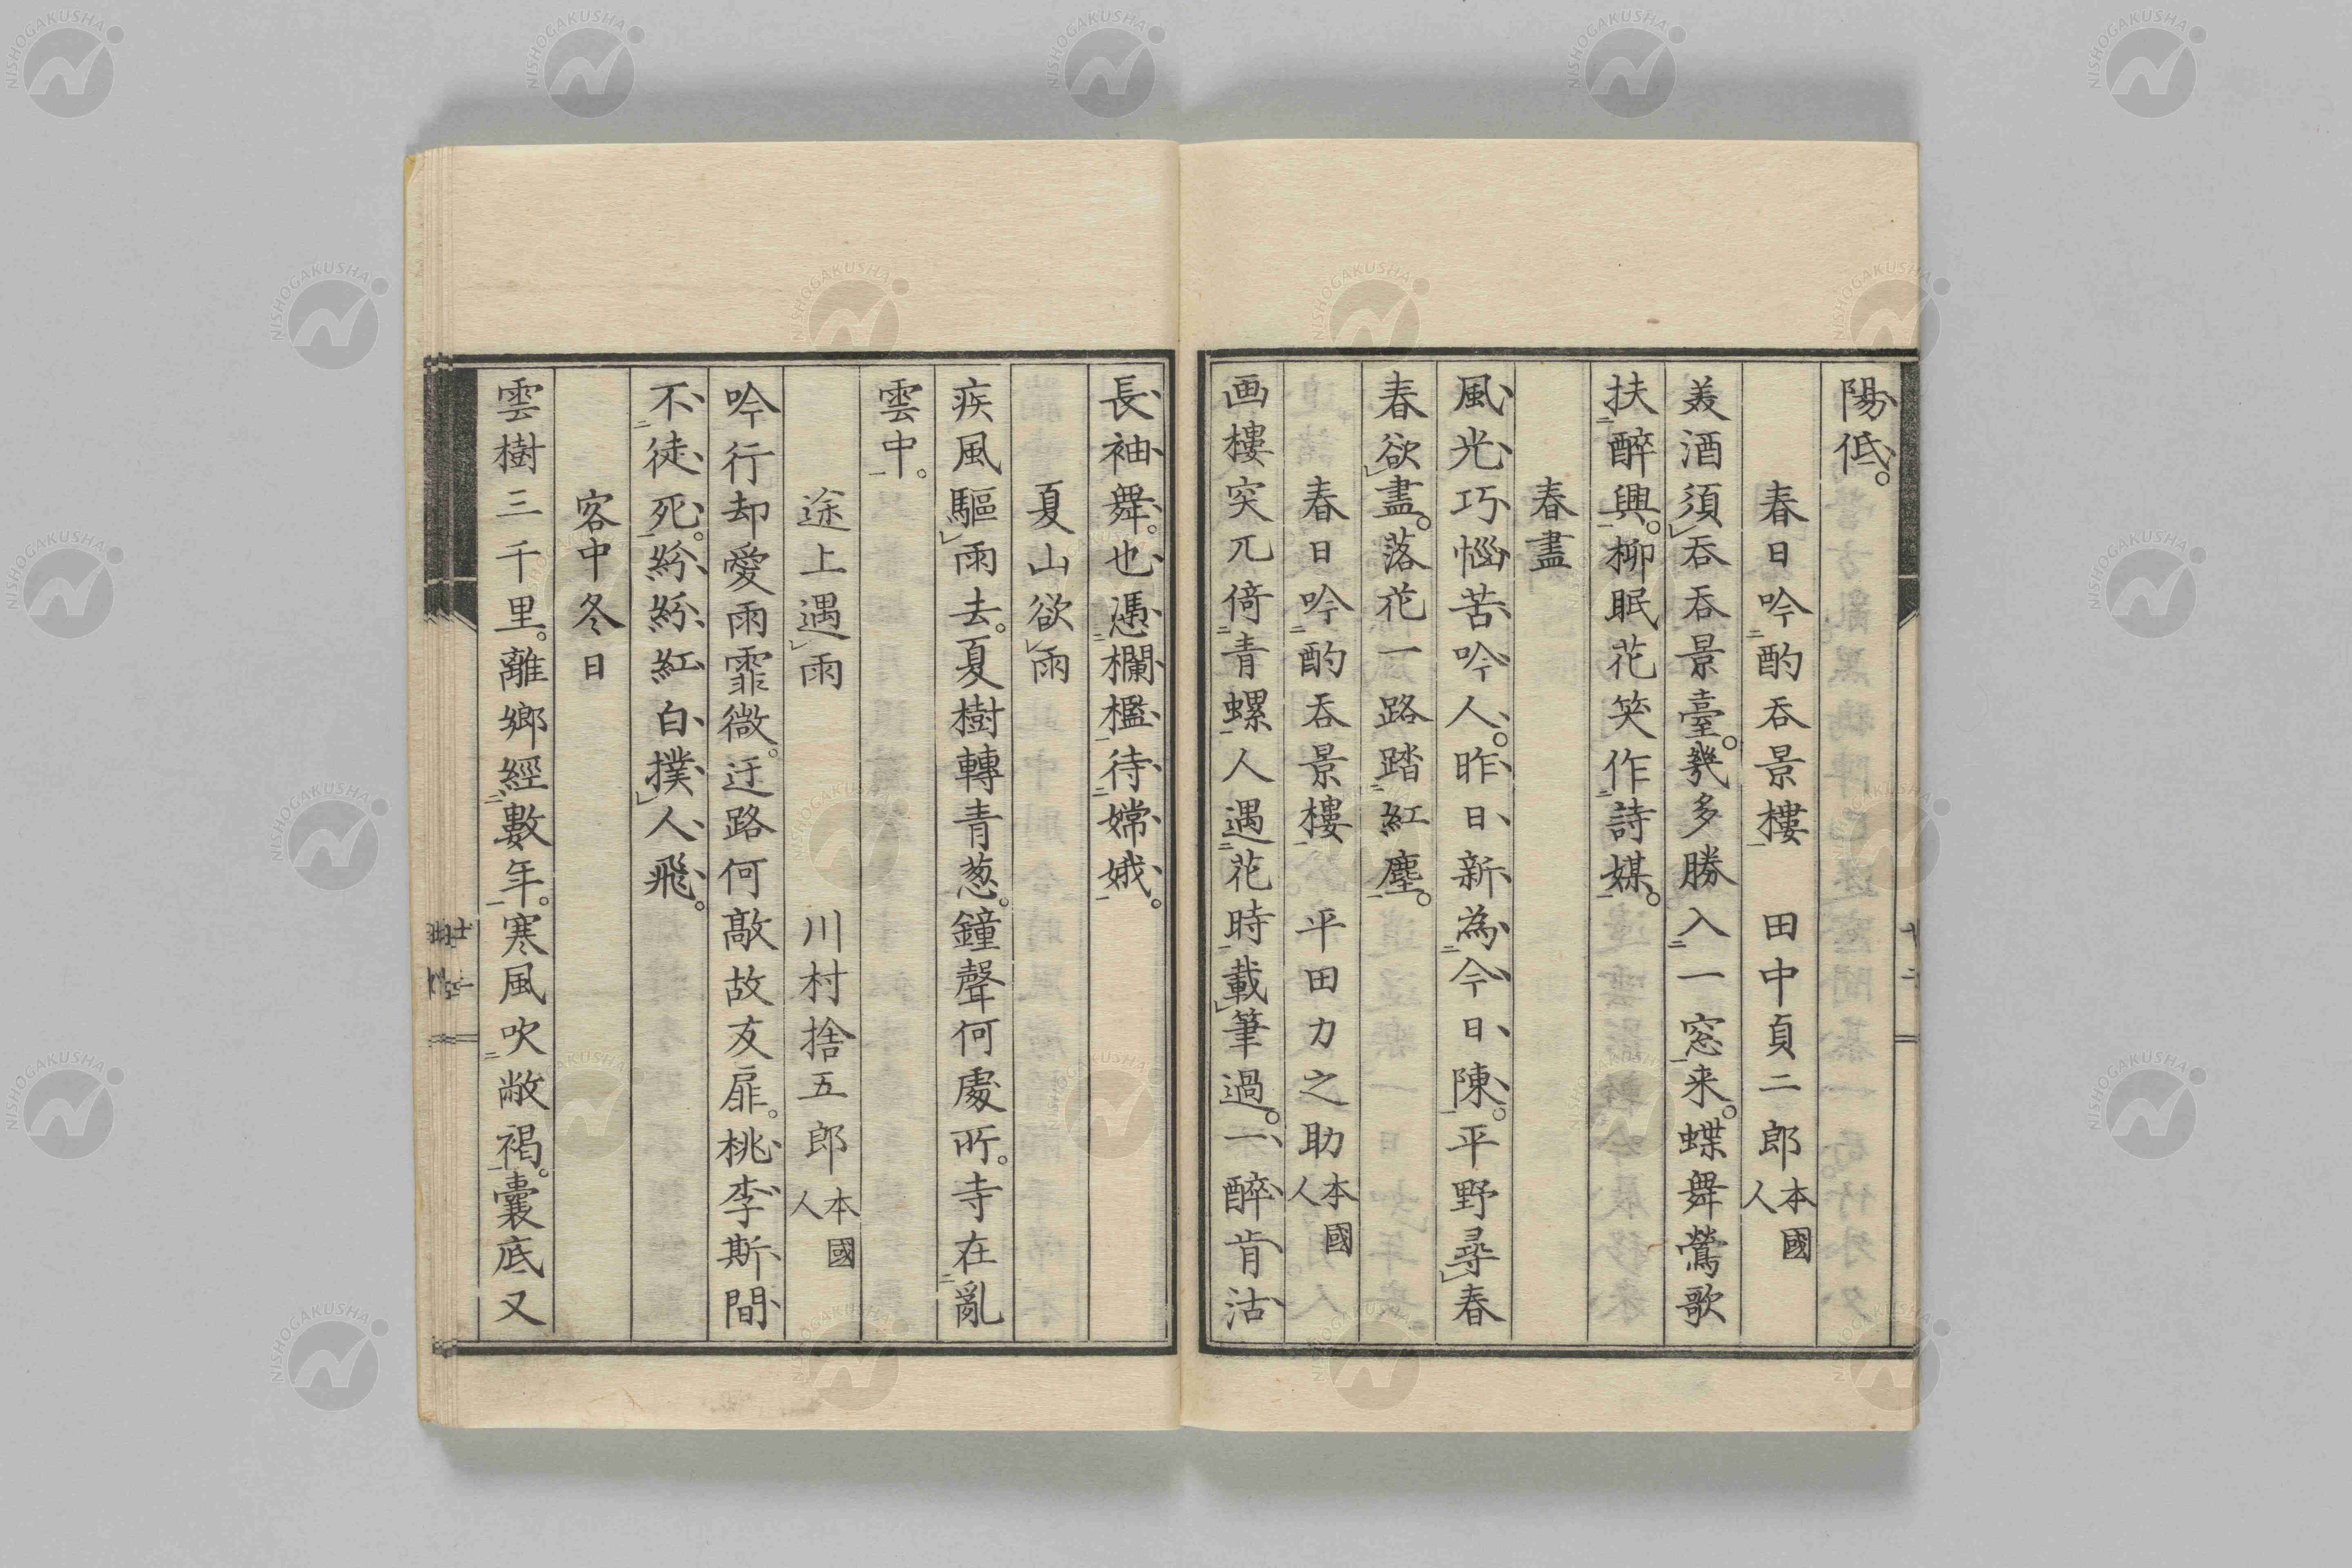 陽低。
春日吟二酌吞景樓一 田中貞二郎本國人
美酒須レ吞吞景臺。幾多勝入二一窓一来。蝶舞鶯歌
扶二醉興一。柳眠花笑作二詩媒一。
春盡
風光巧惱苦吟人。昨日新為二今日陳一。平野尋レ春
春欲レ盡。落花一路踏二紅塵一。
春日吟二酌吞景樓一 平田力之助本國人
画樓突兀倚二青螺一人遇二花時一載レ筆過。一醉肯沽
長袖舞。也憑二欄檻一待二嫦娥一。
夏山欲レ雨
疾風驅レ雨去。夏樹轉青葱。鐘聲何處所。寺在二亂
雲中一。
途上遇レ雨 川村捨五郎本國人
吟行却愛雨霏微。迂路何敲故友扉。桃李斯間
不二徒死一。紛紛紅白撲レ人飛。
客中冬日
雲樹三千里。離鄉經二數年一。寒風吹二敝褐一。囊底又
NISHOGAKUSHA